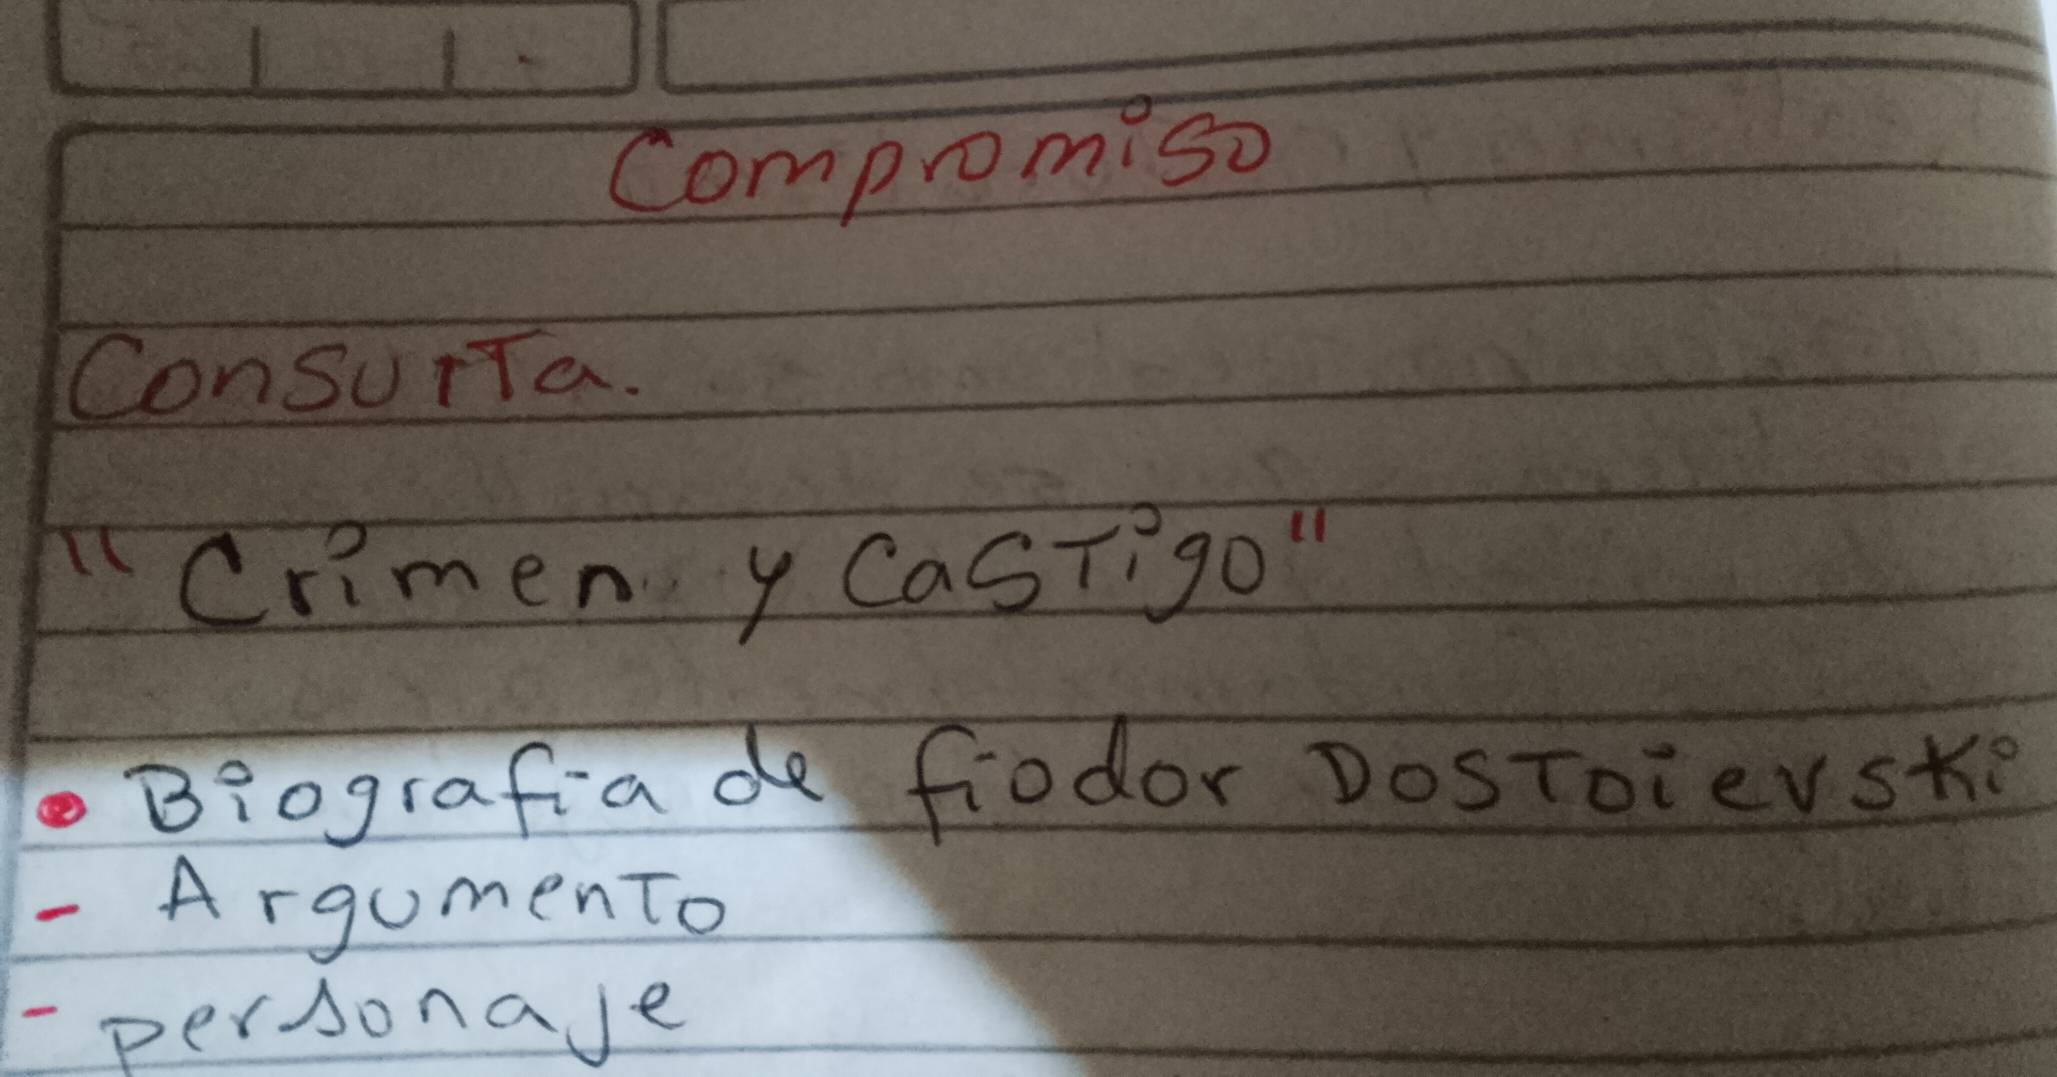 Compromiso
Consurta.
"Crimen y Castigo"
• Biografia de fiodor Dostoievski
- Argumento
- personaje